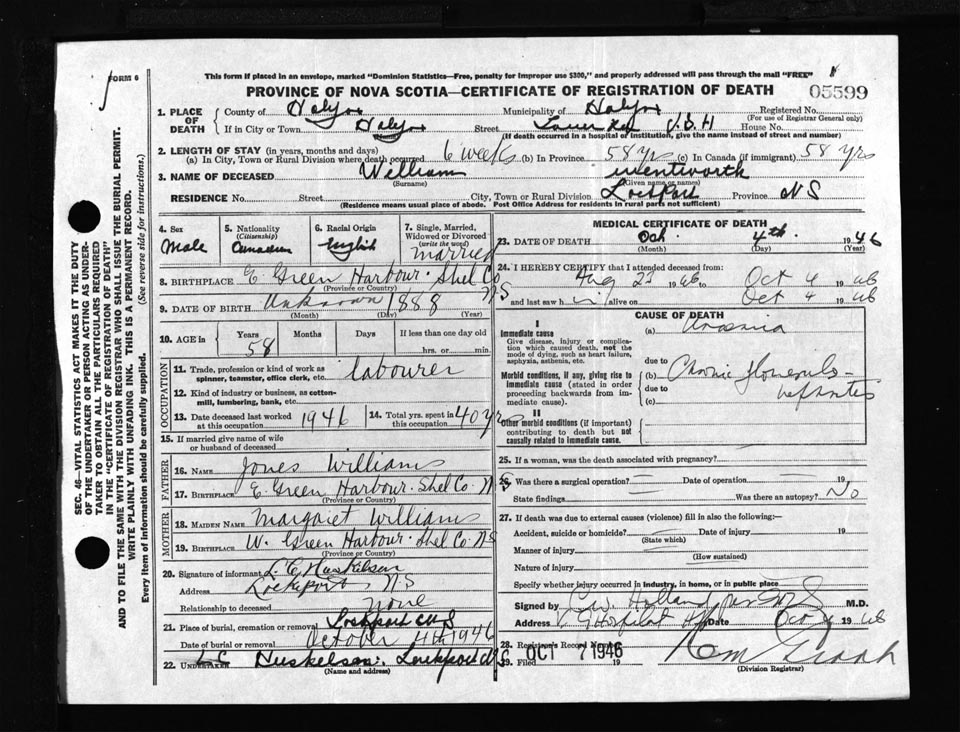 FORM 6
This form if placed in an envelope, marked "Dominion Statistics—Free, penalty for improper use $300," and properly addressed will pass through the mail "FREE"
PROVINCE OF NOVA SCOTIA—CERTIFICATE OF REGISTRATION OF DEATH
05599
1. PLACE OF DEATH
County of Halifax Municipality of Halifax Registered No.
(For use of Registrar General only)
If in City or Town Halifax Street V.G.H House No.
(If death occurred in a hospital or institution, give the name instead of street and number)
2. LENGTH OF STAY (in years, months and days)
(a) In City, Town or Rural Division where death occurred 6 weeks (b) In Province 58 yrs (c) In Canada (if immigrant) 58 yrs
3. NAME OF DECEASED William Wentworth
(Surname) (Given name or names)
RESIDENCE No. Street City, Town or Rural Division Lockport Province NS
(Residence means usual place of abode. Post Office Address for residents in rural parts not sufficient)
4. Sex Male
5. Nationality (Citizenship) Canadian
6. Racial Origin English
7. Single, Married, Widowed or Divorced (write the word) married
8. BIRTHPLACE E. Green Harbour. Shel Co NS
(Province or Country)
9. DATE OF BIRTH Unknown 1888
(Month) (Day) (Year)
10. AGE in Years 58 Months Days If less than one day old hrs. or min.
OCCUPATION
11. Trade, profession or kind of work as spinner, teamster, office clerk, etc. labourer
12. Kind of industry or business, as cotton-mill, lumbering, bank, etc.
13. Date deceased last worked at this occupation 1946
14. Total yrs. spent in this occupation 40 yrs
15. If married give name of wife or husband of deceased
FATHER
16. NAME Jones Williams
17. BIRTHPLACE E. Green Harbour. Shel Co. NS
(Province or Country)
MOTHER
18. MAIDEN NAME Margaret Williams
19. BIRTHPLACE W. Green Harbour. Shel Co. NS
(Province or Country)
20. Signature of informant L. C. Huskelson
Address Lockeport NS
Relationship to deceased None
21. Place of burial, cremation or removal Lockport NS
Date of burial or removal October 4th 1946
22. UNDERTAKER L C Huskelson. Lockport NS
(Name and address)
MEDICAL CERTIFICATE OF DEATH
23. DATE OF DEATH Oct. 4th. 1946
(Month) (Day) (Year)
24. I HEREBY CERTIFY that I attended deceased from:
Aug 23 1946 to Oct 4 1946
and last saw him alive on Oct 4 1946
CAUSE OF DEATH
I
Immediate cause
Give disease, injury or complication which caused death, not the mode of dying, such as heart failure, asphyxia, asthenia, etc.
(a) Uraemia
due to
Morbid conditions, if any, giving rise to immediate cause (stated in order proceeding backwards from immediate cause).
(b) Chronic glomerulo-nephrites
due to
(c)
II
Other morbid conditions (if important) contributing to death but not causally related to immediate cause.
25. If a woman, was the death associated with pregnancy?
26. Was there a surgical operation? Date of operation 19
State findings Was there an autopsy? No
27. If death was due to external causes (violence) fill in also the following:—
Accident, suicide or homicide? Date of injury 19
(State which)
Manner of injury
(How sustained)
Nature of injury
Specify whether injury occurred in industry, in home, or in public place
Signed by C. W. Holland M.D.
Address V G Hospital Hfx Date Oct 4 1946
28. Registrar's Record Number
29. Filed OCT 7 1946 19
(Division Registrar)
SEC. 46—VITAL STATISTICS ACT MAKES IT THE DUTY OF THE UNDERTAKER OR PERSON ACTING AS UNDERTAKER TO OBTAIN ALL THE PARTICULARS REQUIRED IN THE "CERTIFICATE OF REGISTRATION OF DEATH" AND TO FILE THE SAME WITH THE DIVISION REGISTRAR WHO SHALL ISSUE THE BURIAL PERMIT.
WRITE PLAINLY WITH UNFADING INK. THIS IS A PERMANENT RECORD.
Every item of information should be carefully supplied. (See reverse side for instructions.)